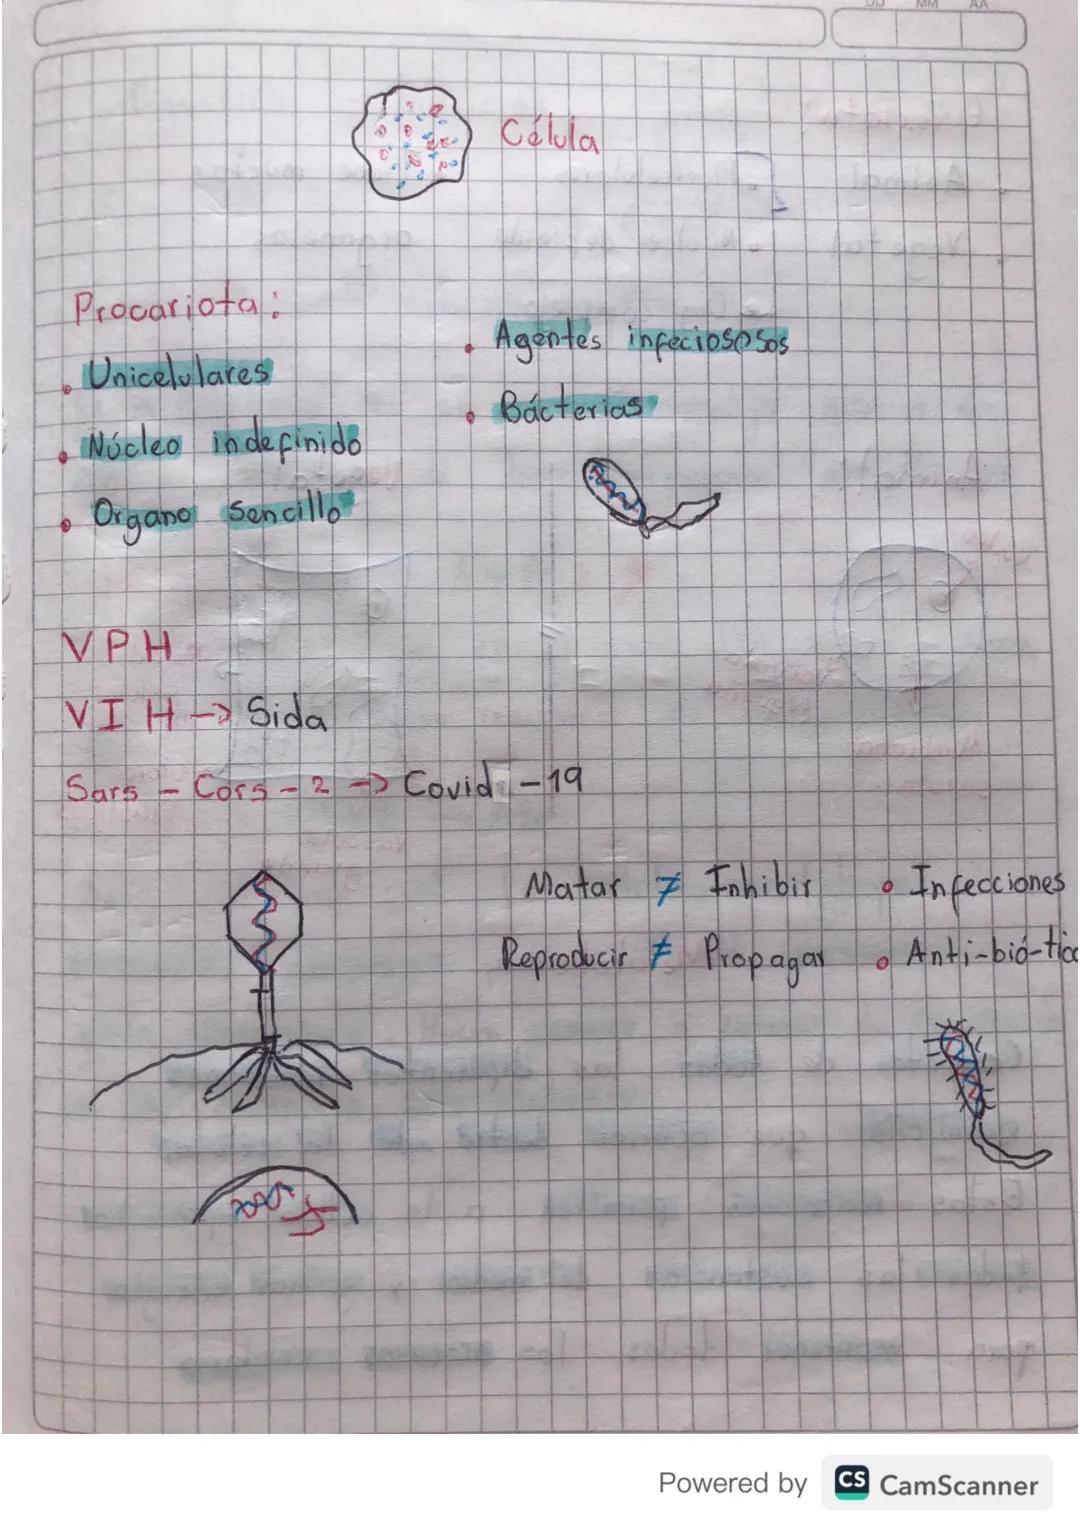 DD MM AA
Célula
Procariota:
• Unicelulares
• Núcleo indefinido
• Organo Sencillo
• Agentes infeciososos
• Bácterias
VPH
VIH -> Sida
Sars - Cors - 2 -> Covid - 19
Matar ≠ Inhibir
Reproducir ≠ Propagar
• Infecciones
• Anti-bió-tico
Powered by CS CamScanner